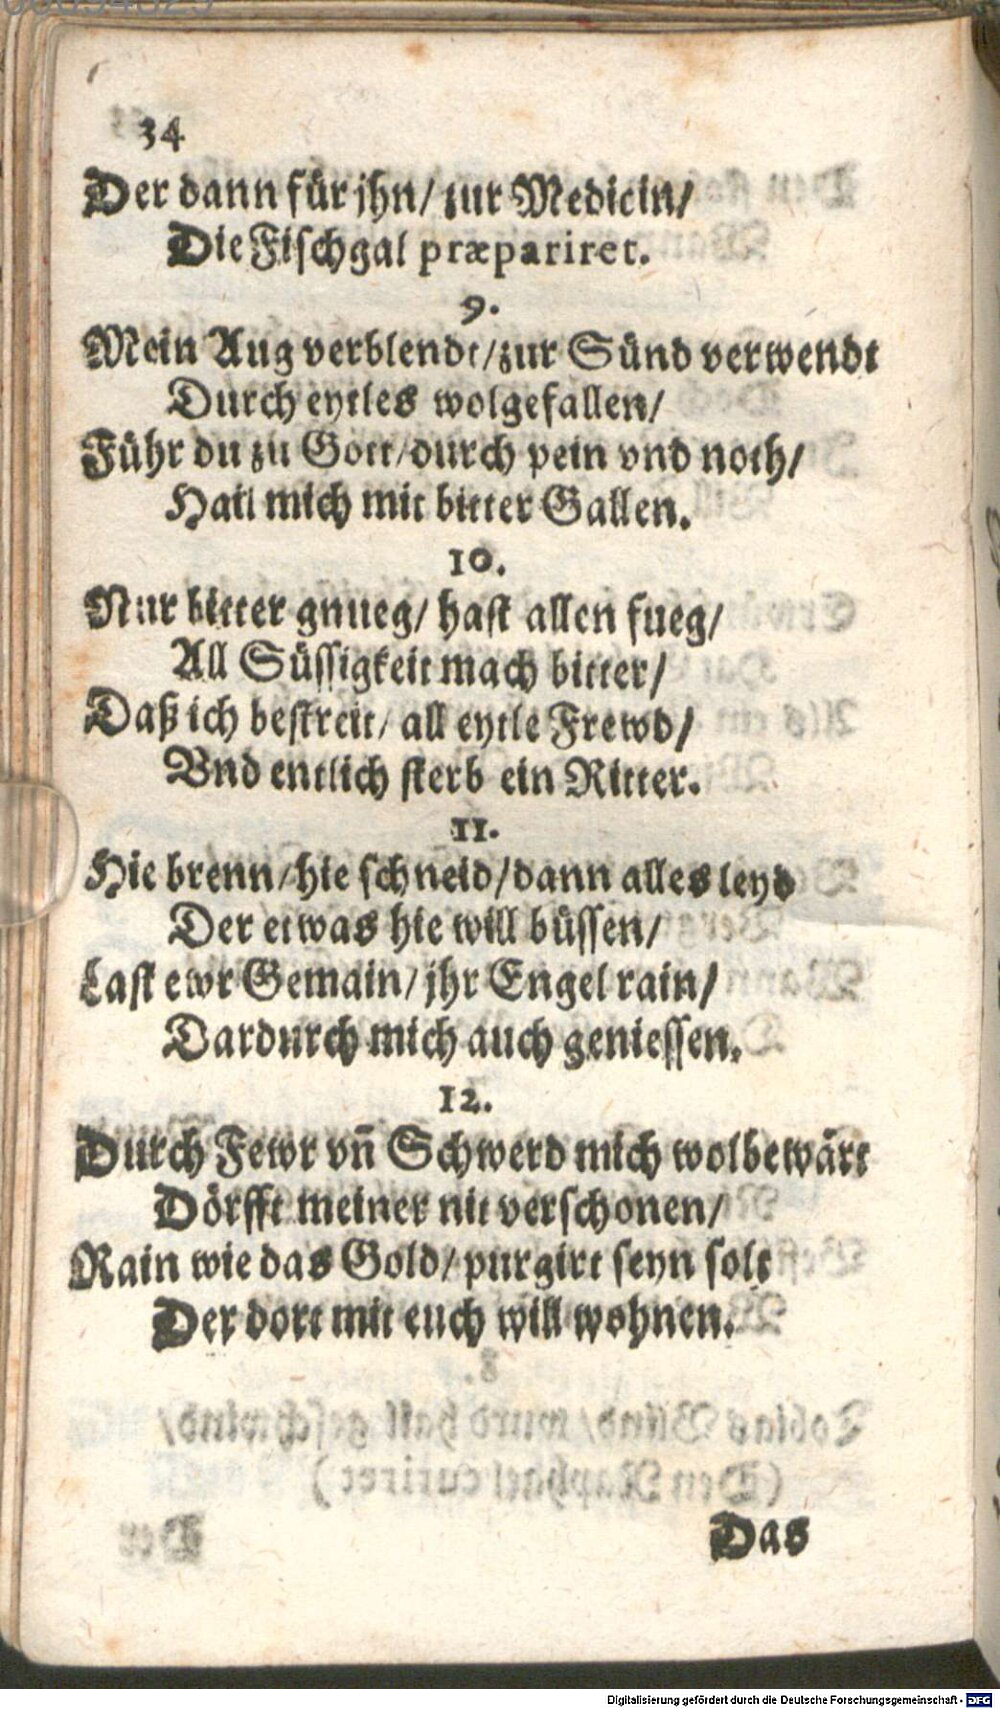 34
Der dann für jhn/ zur Medicin/
Die Fischgal præpariret.
9.
Mein Aug verblendt/ zur Sünd verwendt
Durch eytles wolgefallen/
Führ du zu Gott/ durch pein vnd noth/
Hail mich mit bitter Gallen.
10.
Nur bitter gnueg/ hast allen fueg/
All Süssigkeit mach bitter/
Daß ich bestreit/ all eytle Frewd/
Vnd entlich sterb ein Ritter.
11.
Hie brenn/ hie schneid/ dann alles leyd
Der etwas hie will büssen/
Last ewr Gemain/ jhr Engel rain/
Dardurch mich auch geniessen.
12.
Durch Fewr vn̄ Schwerd mich wolbewärt
Dörfft meiner nit verschonen/
Rain wie das Gold/ purgirt seyn solt
Der dort mit euch will wohnen.
Das
Digitalisierung gefördert durch die Deutsche Forschungsgemeinschaft - DFG